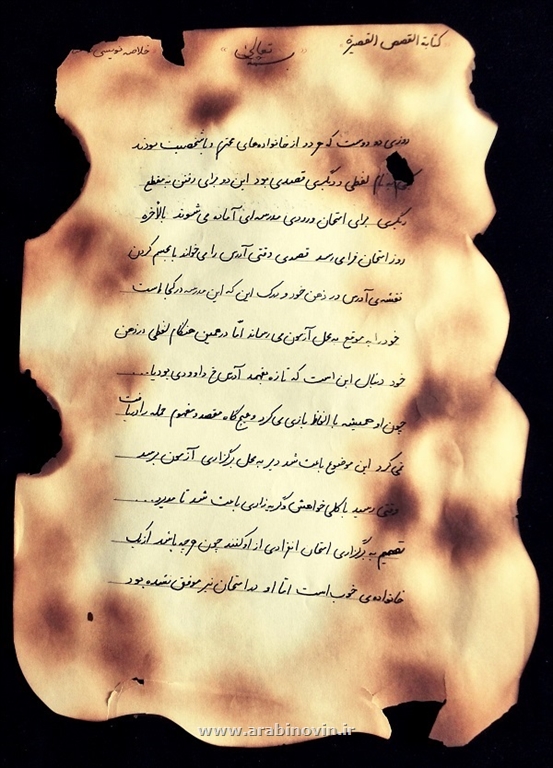 كتابة القصص القصيرة
بسمه تعالی
خلاصه نویسی
روزی دو دوست که هر دو از خانواده‌های محترم و با شخصیت بودند
به نام لفظی و دیگری قصدی بود این دو برای رفتن به مقطع
دیگری برای امتحان ورودی مدرسه‌ای آماده می‌شوند بالاخره
روز امتحان فرا می‌رسد قصدی وقتی آدرس را می‌خواند با مجسم کردن
نقشه‌ی آدرس در ذهن خود و درک این که این مدرسه در کجا است
خود را به موقع به محل آزمون می‌رساند امّا در همین هنگام لفظی در ذهن
خود دنبال این است که تازه بفهمد آدرس خ داوودی بود یا.....
چون او همیشه با الفاظ بازی می‌کرد و هیچ گاه مقصد و مفهوم جمله را دریافت
نمی‌کرد این موضوع باعث شد دیر به محل برگزاری آزمون برسد
وقتی رسید با کلی خواهش و گریه زاری باعث شد تا مدیر.....
تصمیم به برگزاری امتحان انفرادی از او کنند چون هر چه باشد از یک
خانواده‌ی خوب است امّا او در امتحان نیز موفق نشده بود
www.arabinovin.ir